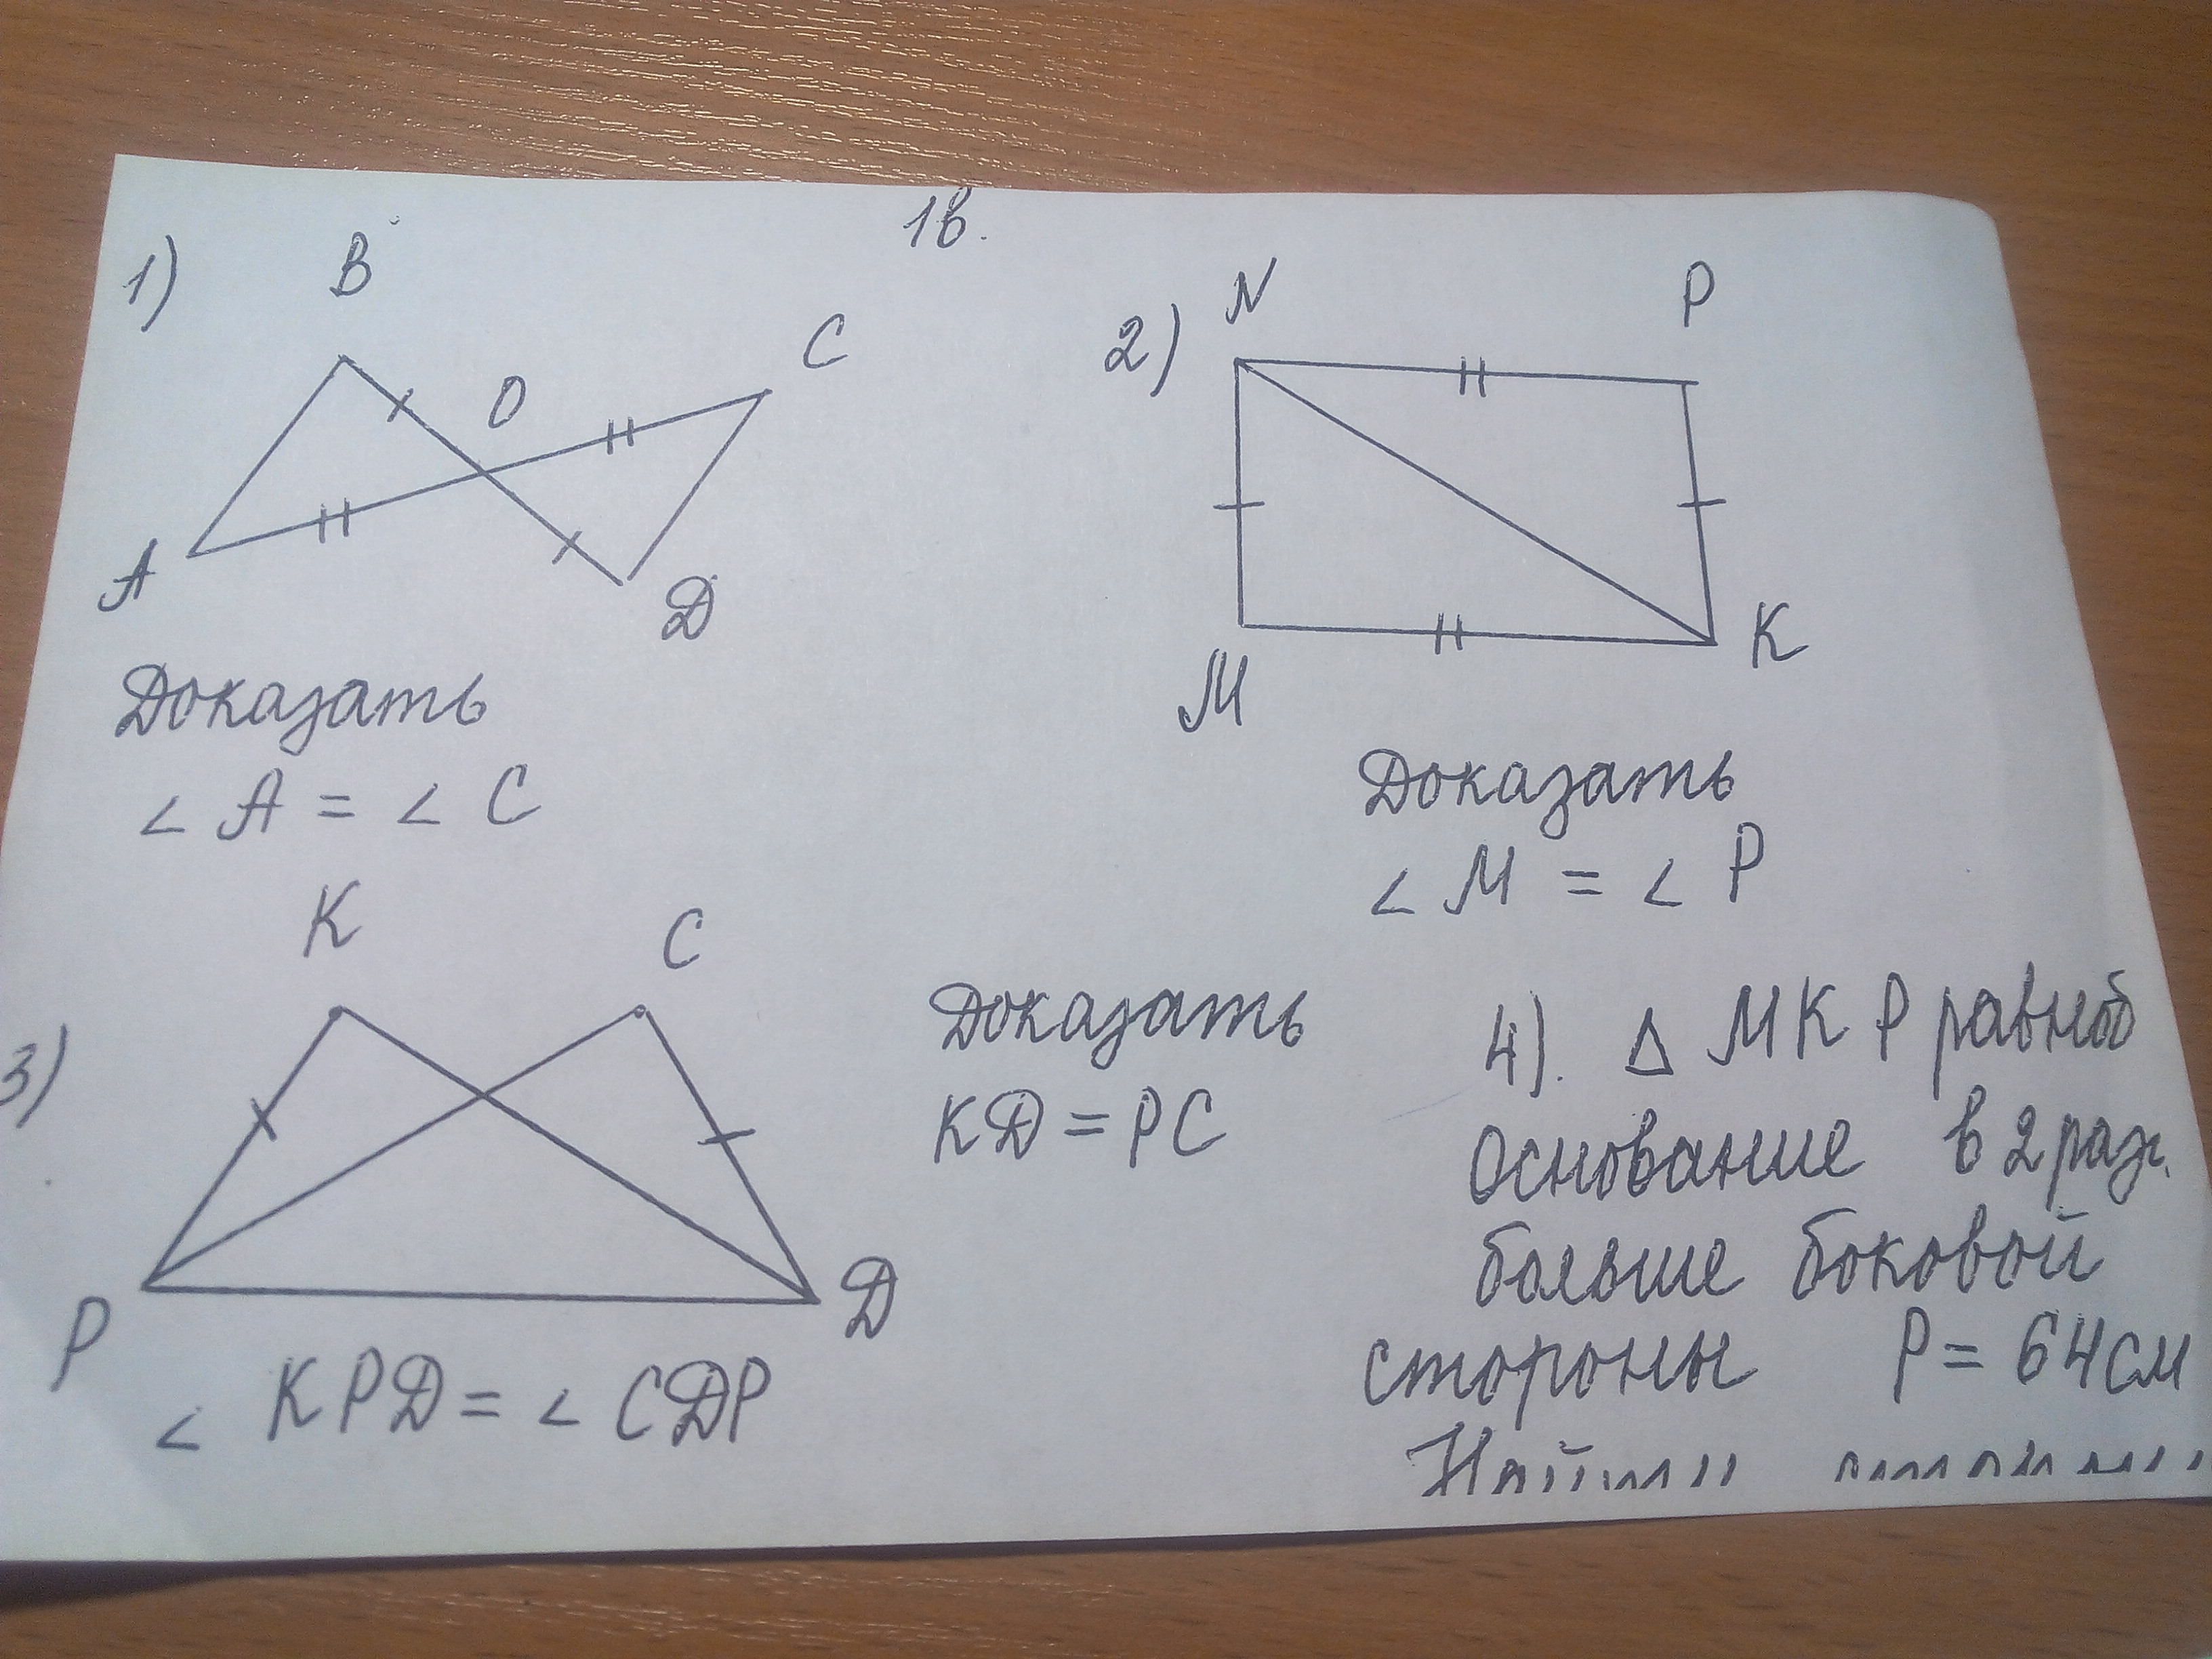 1в.
1)
В
О
С
А
D
Доказать
< А = < С
2)
N
P
M
K
Доказать
< M = < P
3)
K
C
P
D
< KPD = < CDP
Доказать
KD = PC
4). Δ MKP равноб
основание в 2 раз.
больше боковой
стороны P = 64см
Найти